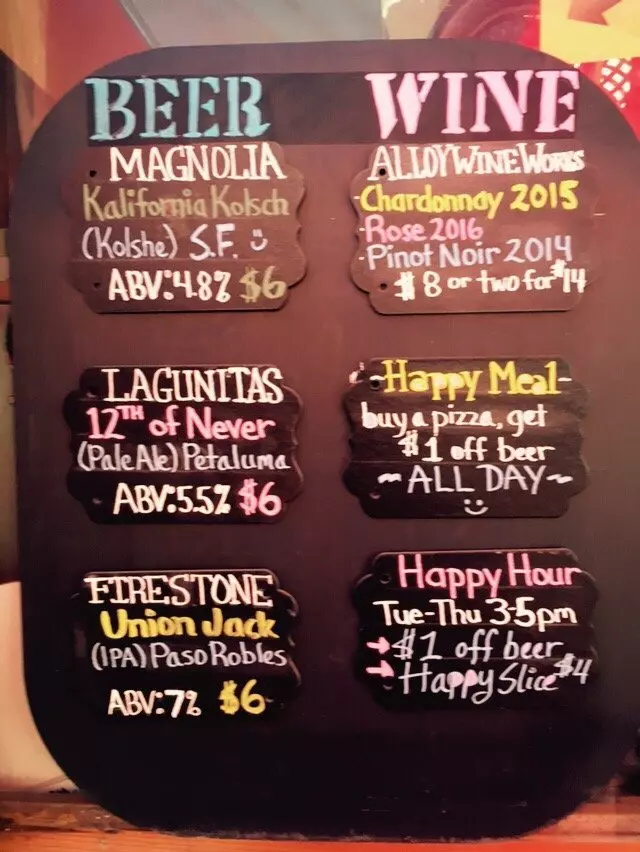 BEER
MAGNOLIA
Kalifornia Kolsch
(Kolshe) S.F.
ABV: 4.8% $6
LAGUNITAS
12TH of Never
(Pale Ale) Petaluma
ABV: 5.5% $6
FIRESTONE
Union Jack
(IPA) Paso Robles
ABV: 7% $6
WINE
ALLOY WINE WORKS
-Chardonnay 2015
-Rose 2016
-Pinot Noir 2014
$8 or two for $14
-Happy Meal-
buy a pizza, get
$1 off beer
~ALL DAY~
Happy Hour
Tue-Thu 3-5pm
→ $1 off beer
→ Happy Slice $4